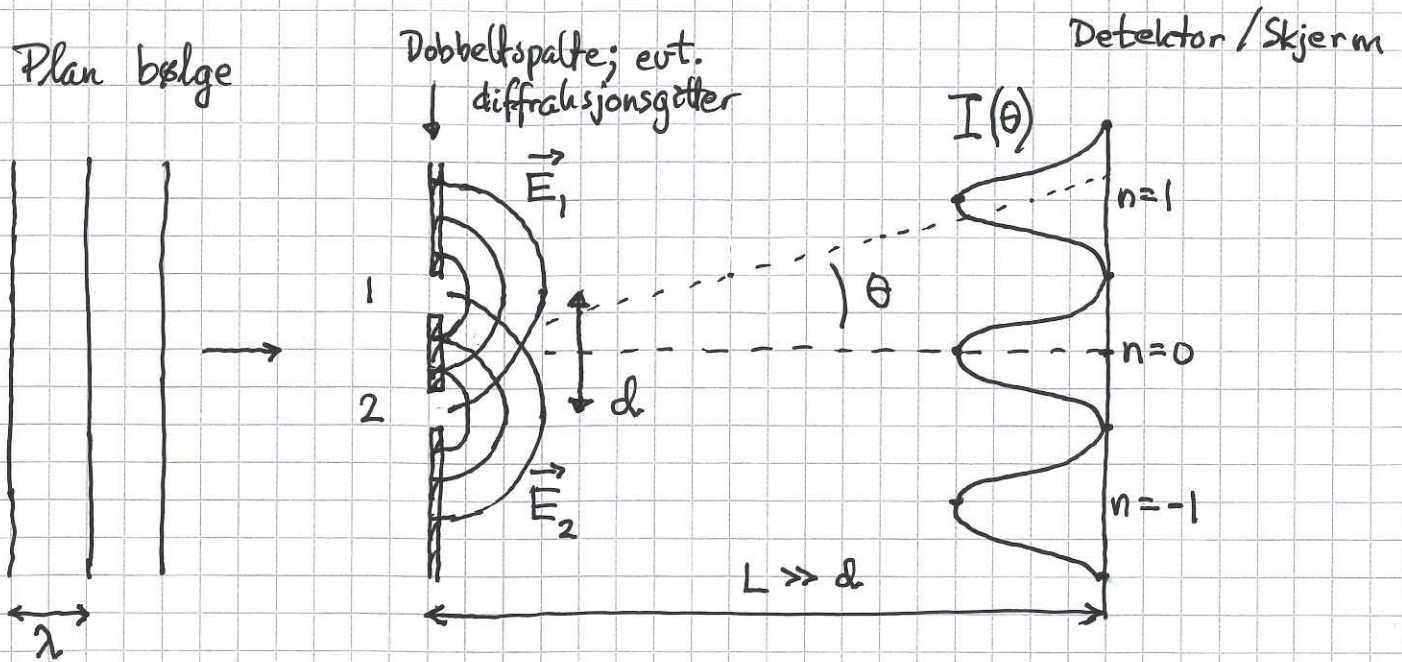 Plan bølge
Dobbeltspalte; evt.
diffraksjonsgitter
Detektor / Skjerm
I(θ)
E₁
n=1
1
θ
n=0
2
d
E₂
n=-1
L >> d
λ